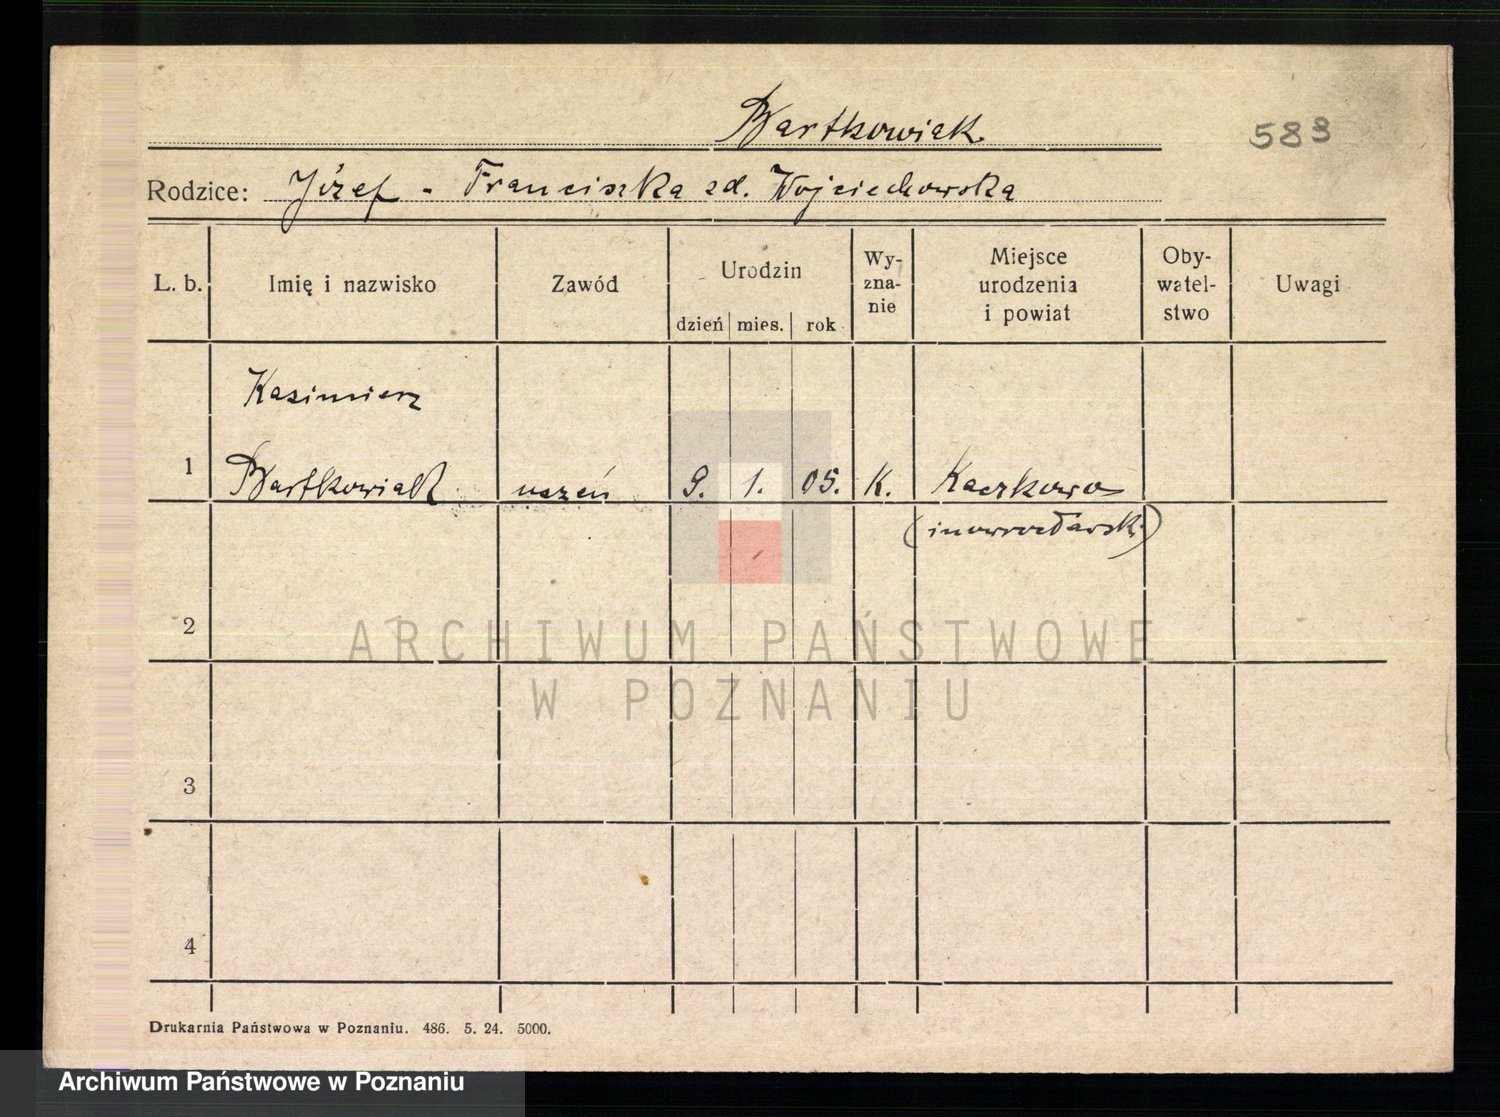 Bartkowiak.
583
Rodzice: Józef - Franciszka zd. Wojciechowska
L. b. Imię i nazwisko Zawód Urodzin dzień mies. rok Wy-zna-nie Miejsce urodzenia i powiat Oby-watel-stwo Uwagi
Kazimierz
1 Bartkowiak uczeń 9. 1. 05. K. Kaczkowo
(inowrocławski)
2
ARCHIWUM PAŃSTWOWE
W POZNANIU
3
4
Drukarnia Państwowa w Poznaniu. 486. 5. 24. 5000.
Archiwum Państwowe w Poznaniu